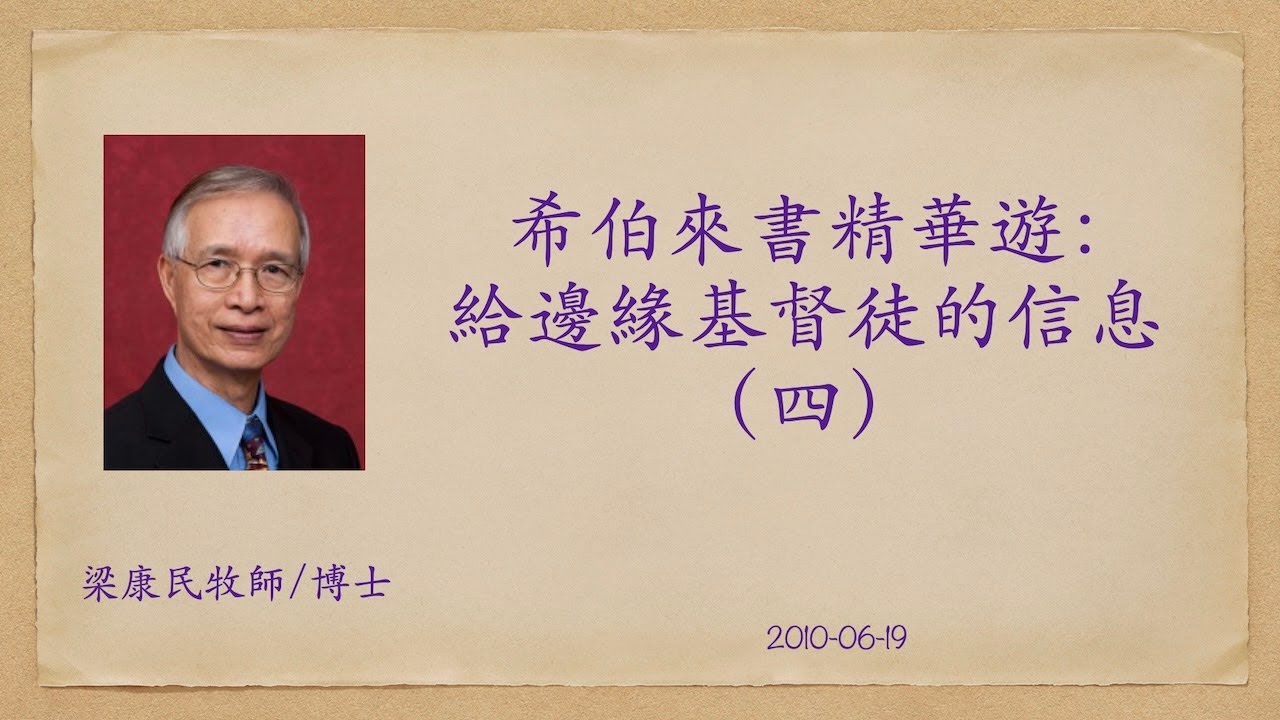 希伯來書精華遊:
給邊緣基督徒的信息
(四)
梁康民牧師/博士
2010-06-19